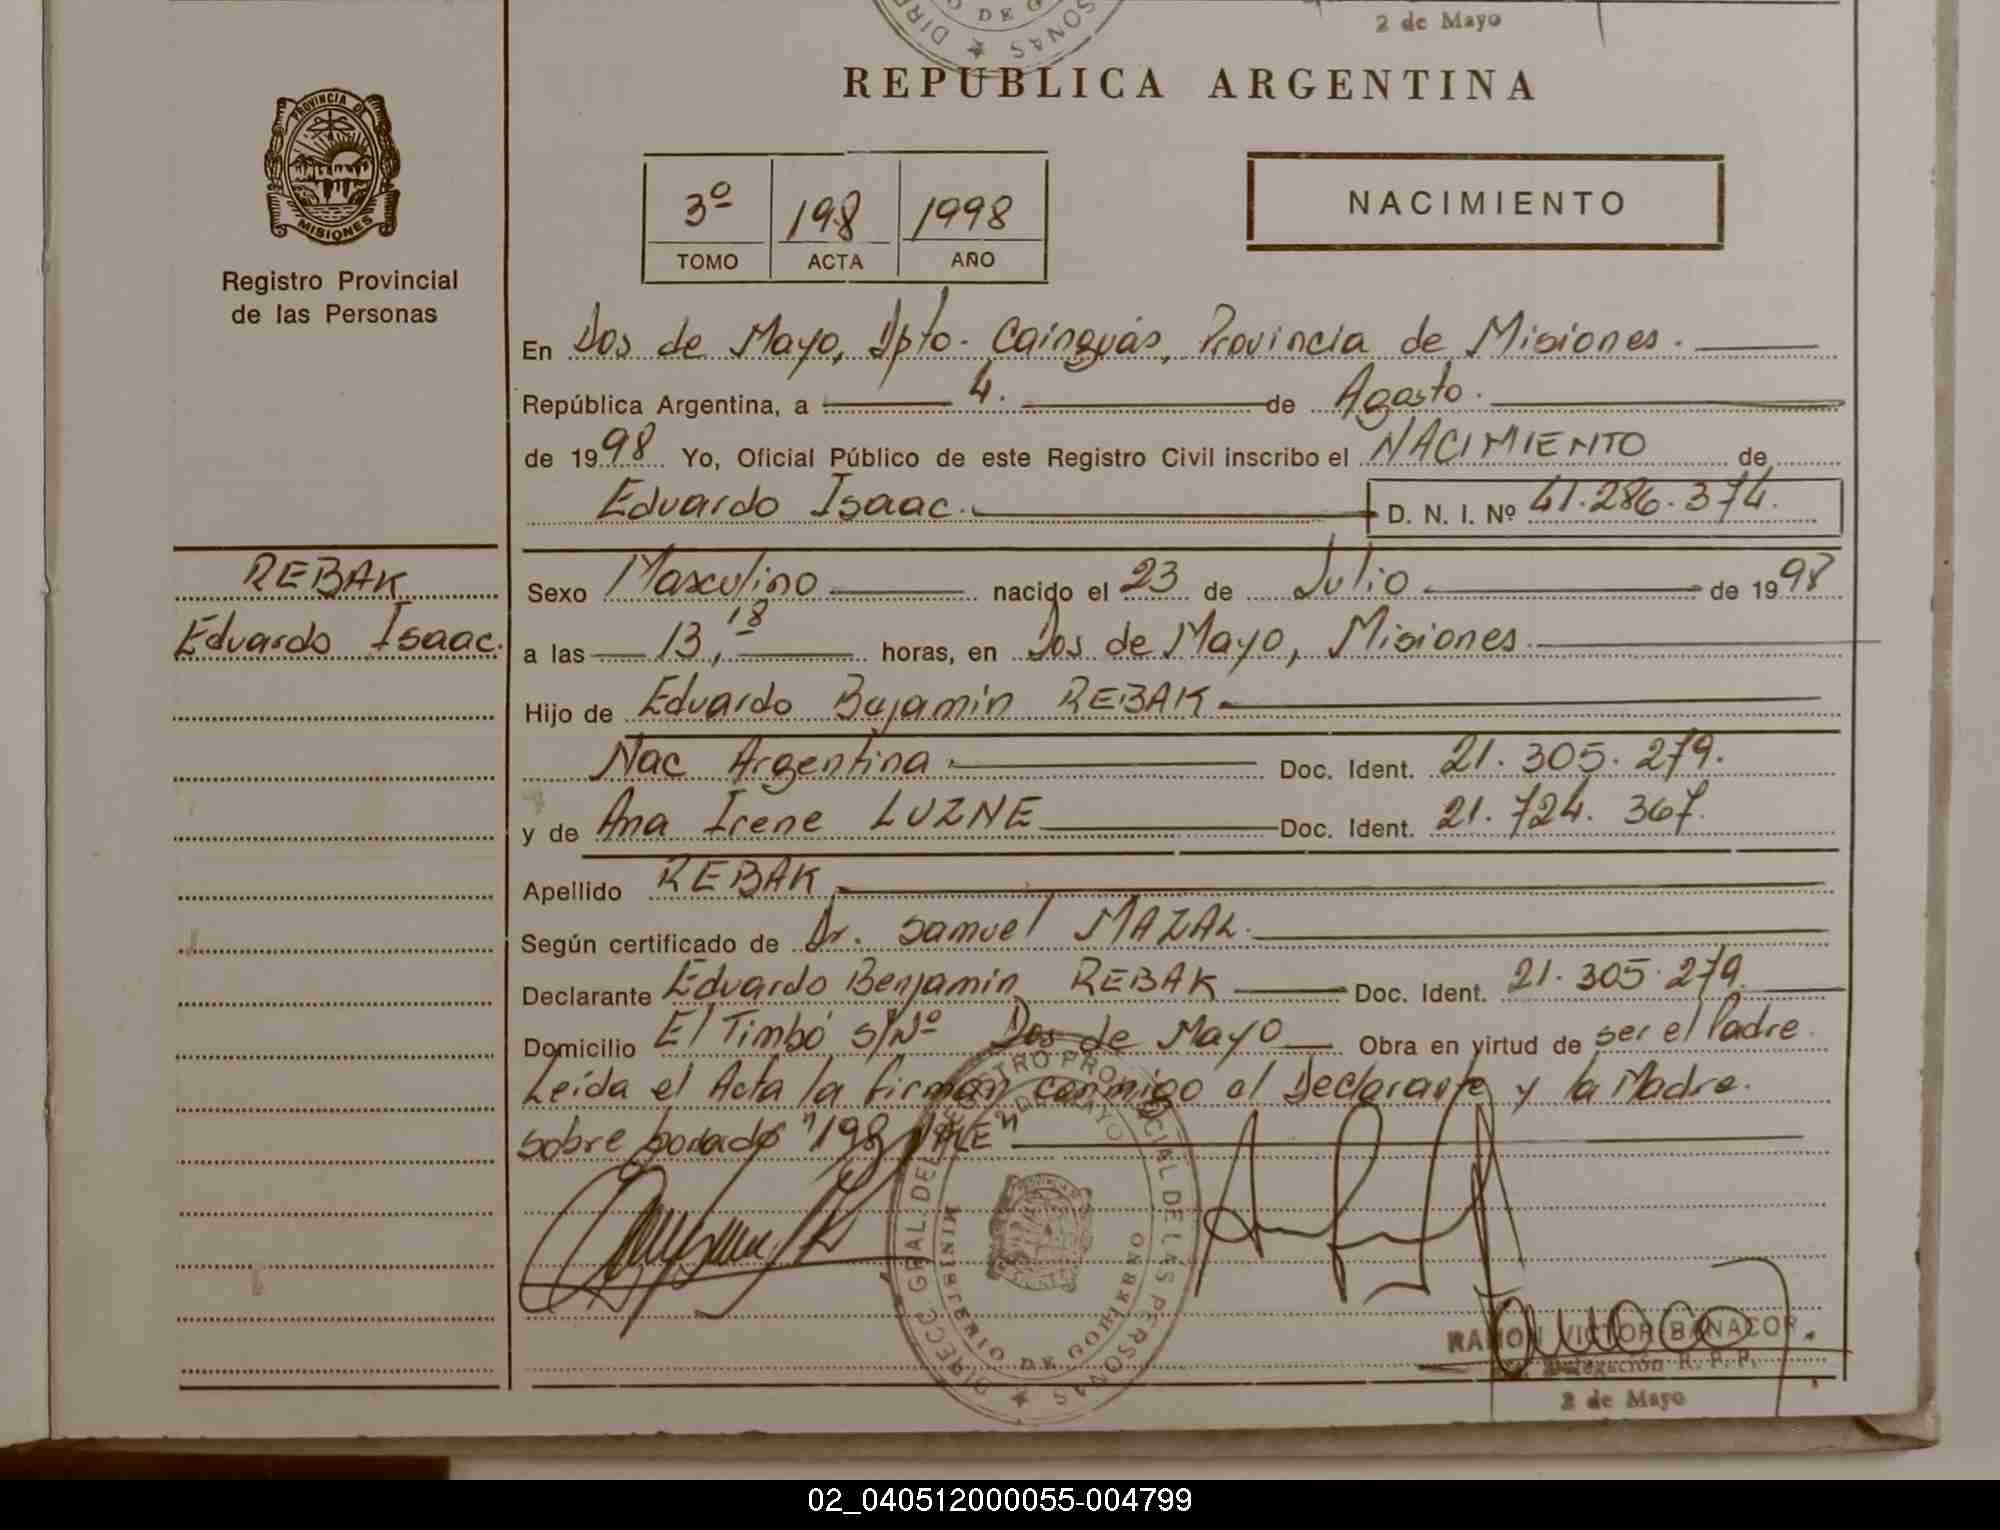 2 de Mayo
REPUBLICA ARGENTINA
PROVINCIA DE
MISIONES
Registro Provincial
de las Personas
3º 198 1998
TOMO ACTA AÑO
NACIMIENTO
En Dos de Mayo, Dpto. Cainguás, Provincia de Misiones.
República Argentina, a 4. de Agosto.
de 1998 Yo, Oficial Público de este Registro Civil inscribo el NACIMIENTO de
Eduardo Isaac. D. N. I. Nº 41.286.374.
REBAK
Eduardo Isaac.
Sexo Masculino nacido el 23 de Julio de 1998
a las 13,18 horas, en Dos de Mayo, Misiones
Hijo de Eduardo Bejamin REBAK
Nac Argentina. Doc. Ident. 21.305.279.
y de Ana Irene LUZNE Doc. Ident. 21.724.367.
Apellido REBAK
Según certificado de Dr. Samuel MAZAL.
Declarante Eduardo Benjamin REBAK Doc. Ident. 21.305.279
Domicilio El Timbó S/Nº Dos de Mayo Obra en virtud de ser el Padre.
Leída el Acta la firman conmigo el Declarante y la Madre.
sobre borrado "198 VALE"
DIRECC. GRAL. DEL REGISTRO PROVINCIAL DE LAS PERSONAS
MINISTERIO DE GOBIERNO
RAMON VICTOR BANACOR
Delegación R. P. P.
2 de Mayo
02_040512000055-004799